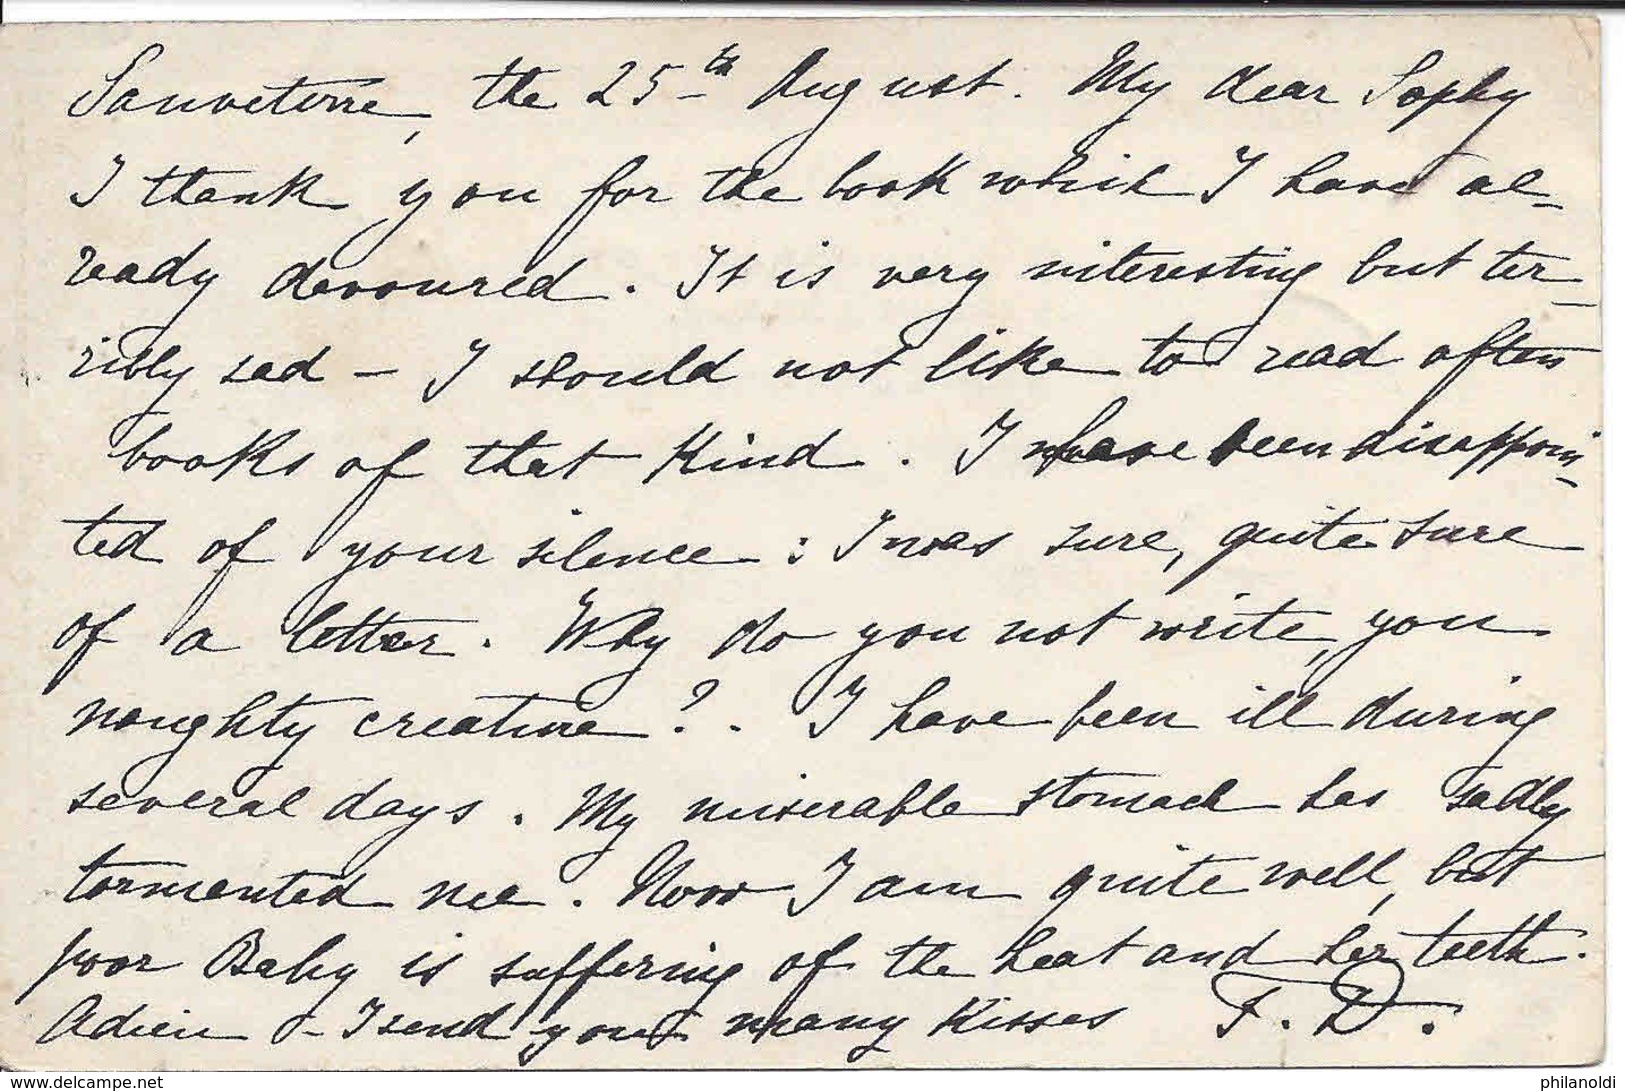 Sauveterre, the 25th August. My dear Sophy
I thank you for the book which I have al-
ready devoured. It is very interesting but ter-
ribly sad - I should not like to read often
books of that kind. I have been disappoin-
ted of your silence: I was sure, quite sure
of a letter. Why do you not write, you
naughty creature?. I have been ill during
several days. My miserable stomach has sadly
tormented me. Now I am quite well, but
poor Baby is suffering of the heat and her teeth.
Adieu - I send you many kisses F. D.
www.delcampe.net
philanoldi